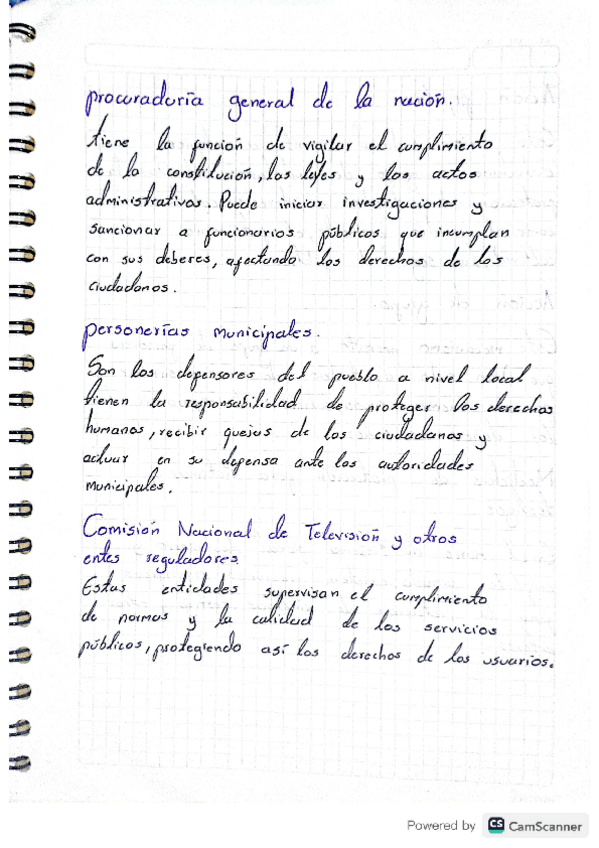 procuraduría general de la nación.
tiene la función de vigilar el cumplimiento
de la constitución, las leyes y los actos
administrativos. Puede iniciar investigaciones y
sancionar a funcionarios públicos que incumplan
con sus deberes, afectando los derechos de los
ciudadanos.
personerías municipales.
Son los defensores del pueblo a nivel local
tienen la responsabilidad de proteger los derechos
humanos, recibir quejas de los ciudadanos y
actuar en su defensa ante las autoridades
municipales.
Comisión Nacional de Televisión y otros
entes reguladores.
Estas entidades supervisan el cumplimiento
de normas y la calidad de los servicios
públicos, protegiendo así los derechos de los usuarios.
Powered by CS CamScanner